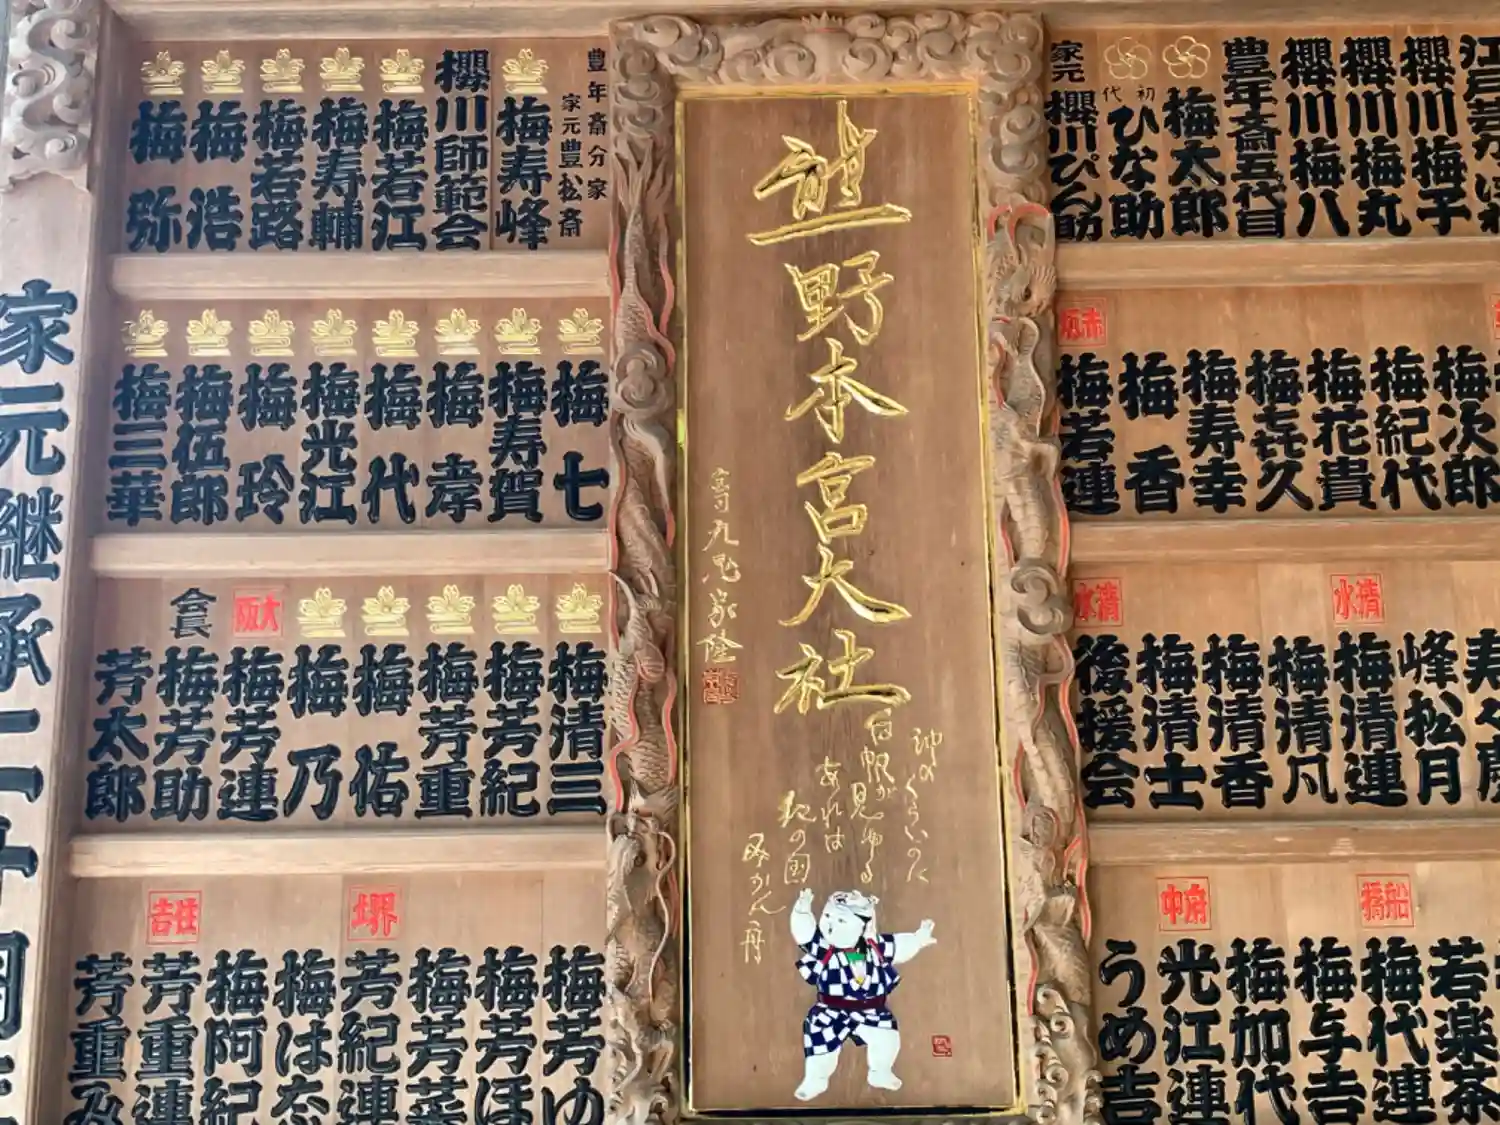 熊野本宮大社
神のくらいのに
白帆が見ゆる
あれは
紀の国
家元
櫻川ぴん助
初代
ひな助
梅太郎
豊年斎五代目
櫻川梅八
櫻川梅丸
櫻川梅子
豊年斎分家
家元豊松斎
梅寿峰
櫻川師範会
梅若江
梅寿輔
梅若路
梅浩
梅弥
梅次郎
梅紀代
梅花貴
梅㐂久
梅寿幸
梅香
梅若連
梅七
梅寿賀
梅孝
梅代
梅光江
梅玲
梅伍郎
梅三華
峰松月
清水
梅清連
梅清凡
梅清香
梅清士
清水
後援会
梅清三
梅芳紀
梅芳重
梅佑
梅乃
大阪
梅芳連
会長
梅芳助
芳太郎
若楽茶
船橋
梅代連
梅与吉
梅加代
府中
光江連
うめ吉
梅芳ゆ
梅芳ほ
梅芳菜
堺
芳紀連
梅はな
梅阿紀
住吉
芳重連
芳重み
家元継承二十周